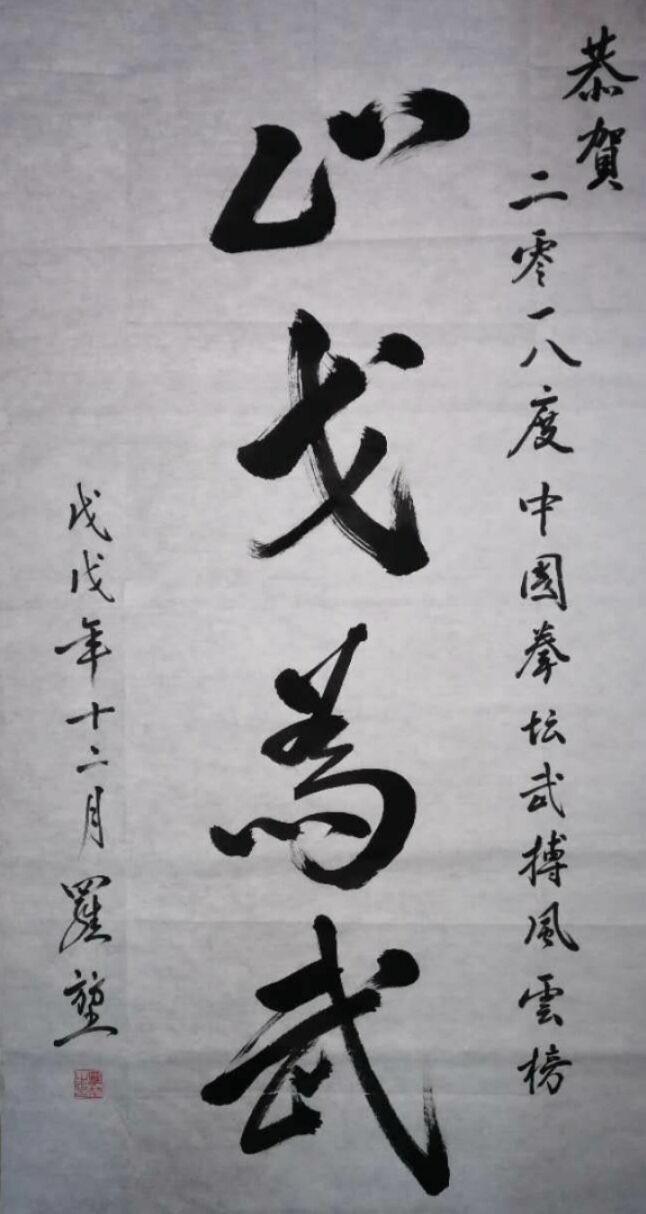 恭賀
二零一八度中國拳坛武搏風雲榜
止戈為武
戊戌年十二月羅